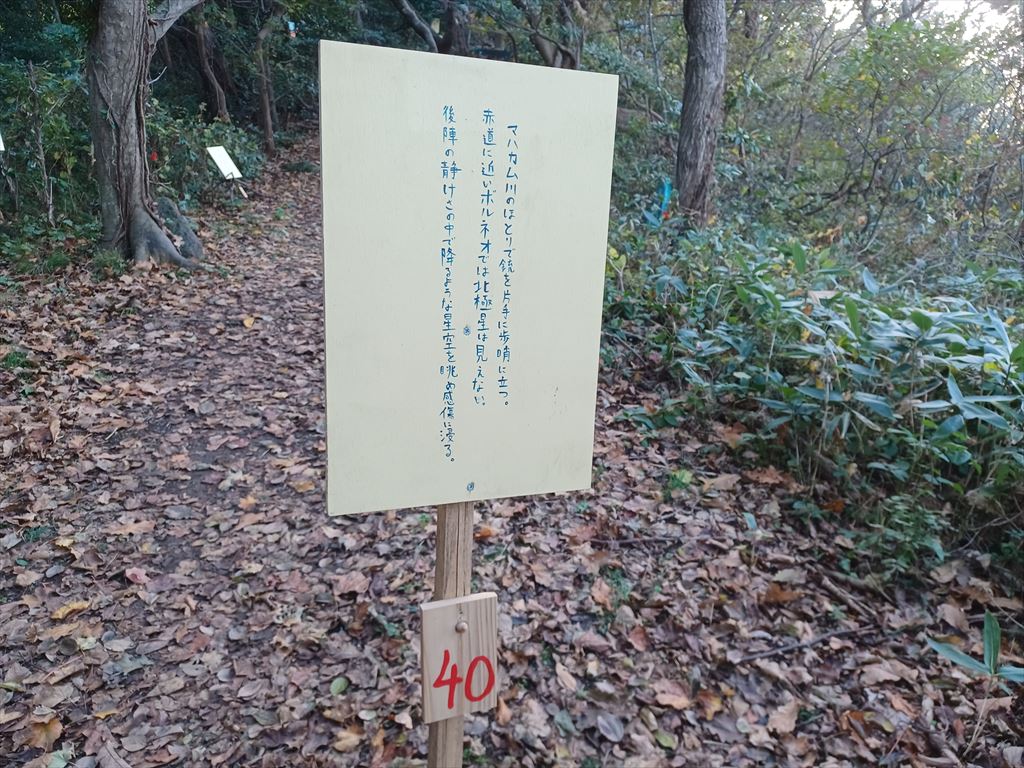 マハカム川のほとりで銃を片手に歩哨に立つ。
赤道に近いボルネオでは北極星は見えない。
後陣の静けさの中で降るような星空を眺め感傷に浸る。
40